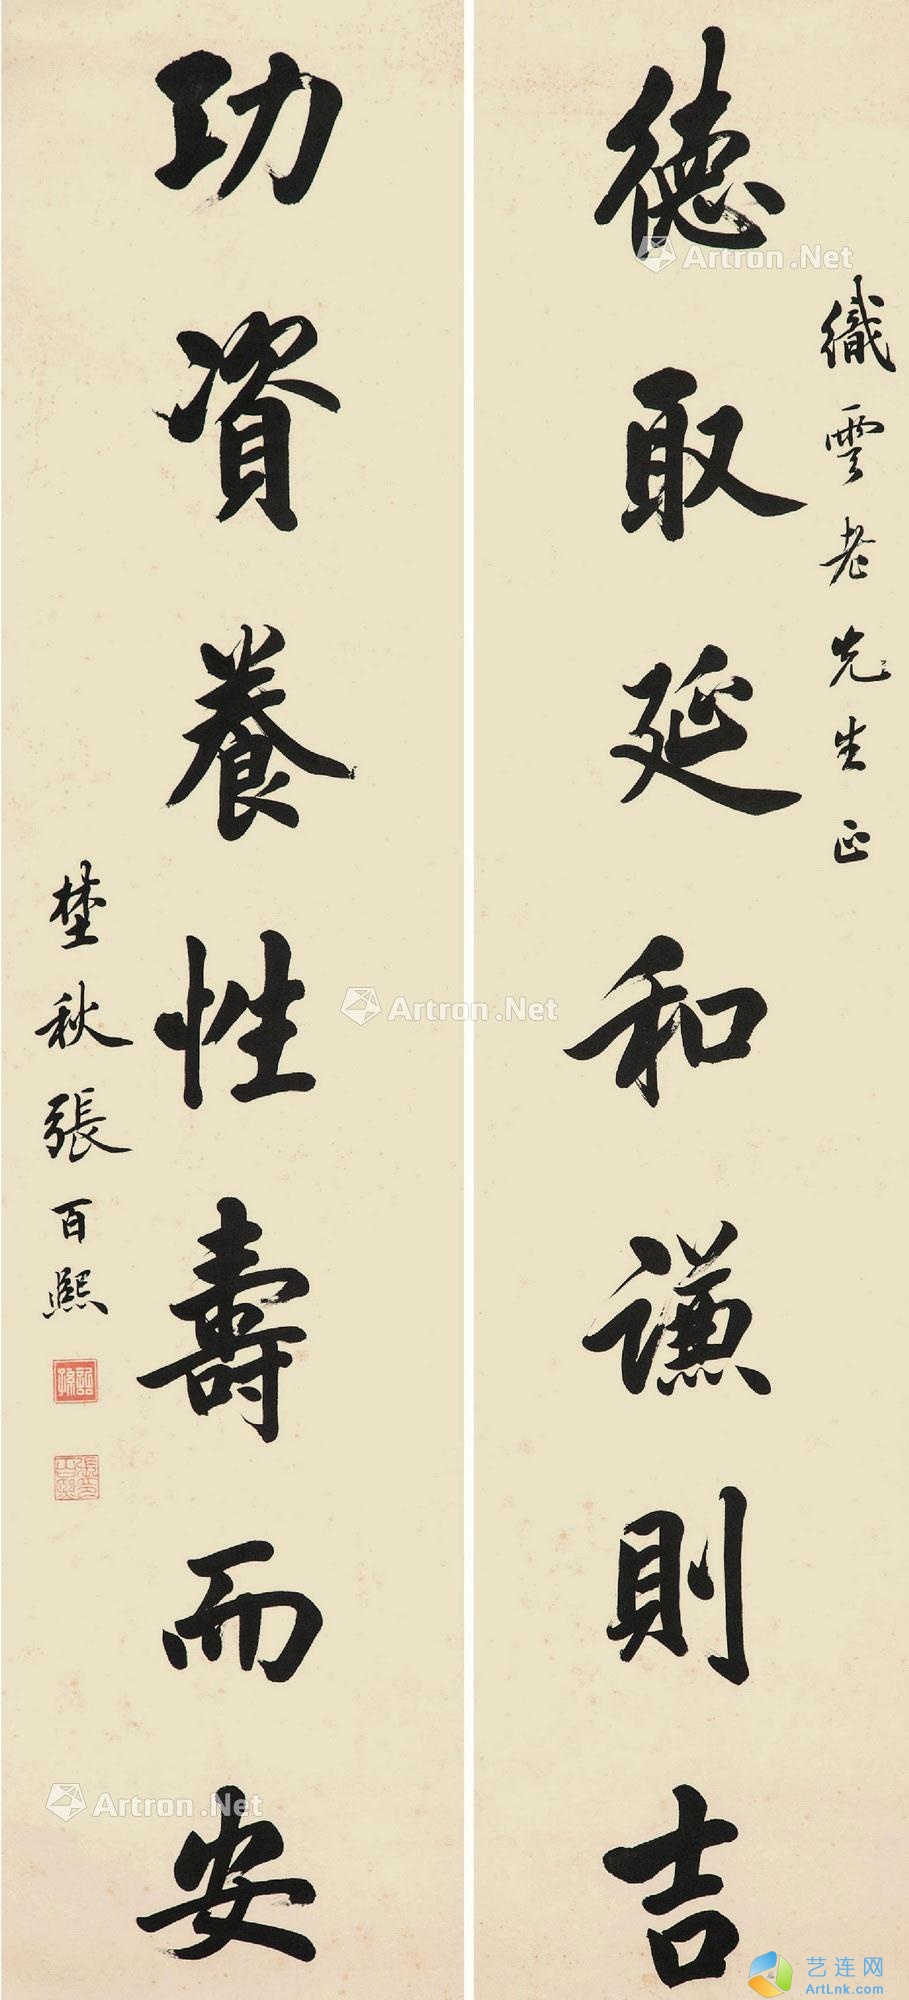 織雲老先生正
德取延和謙則吉
功資養性壽而安
埜秋張百熙
張百熙印
Artron.Net
Artron.Net
Artron.Net
艺连网
ArtLnk.com